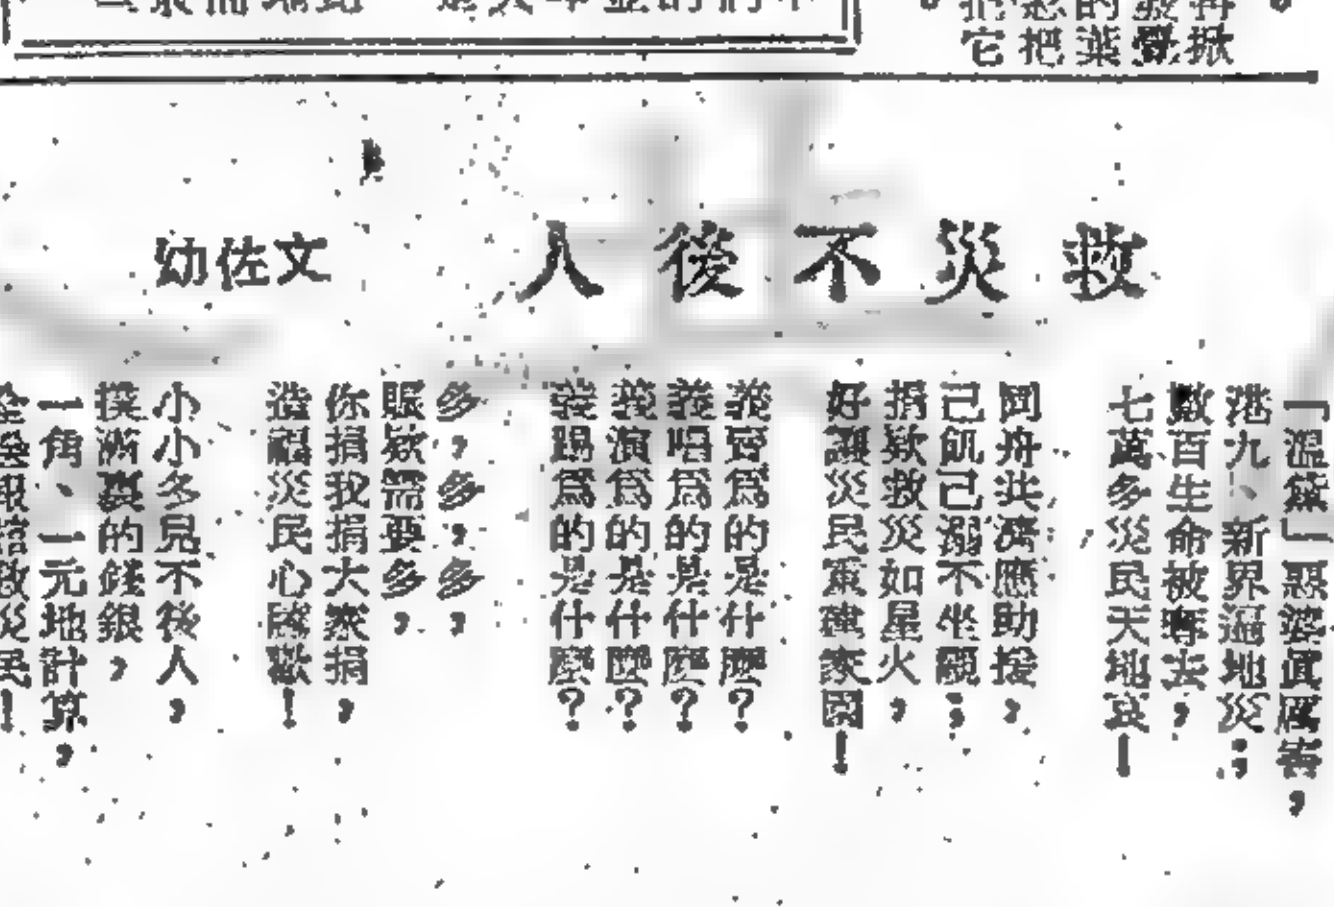 救災不後人
文佐幼
「溫黛」惡婆真厲害，
港九、新界遍地災；
數百生命被奪去，
七萬多災民天地哀！
同舟共濟應助援，
己飢己溺不坐視；
捐欵救災如星火，
好讓災民重建家園！
義賣爲的是什麼？
義唱爲的是什麼？
義演爲的是什麼？
義踢爲的是什麼？
多，多，多，
賑欵需要多，
你捐我捐大家捐，
造福災民心歡！
小小多見不後人，
撲滿裏的錢銀，
一角、一元地計算，
救災民！